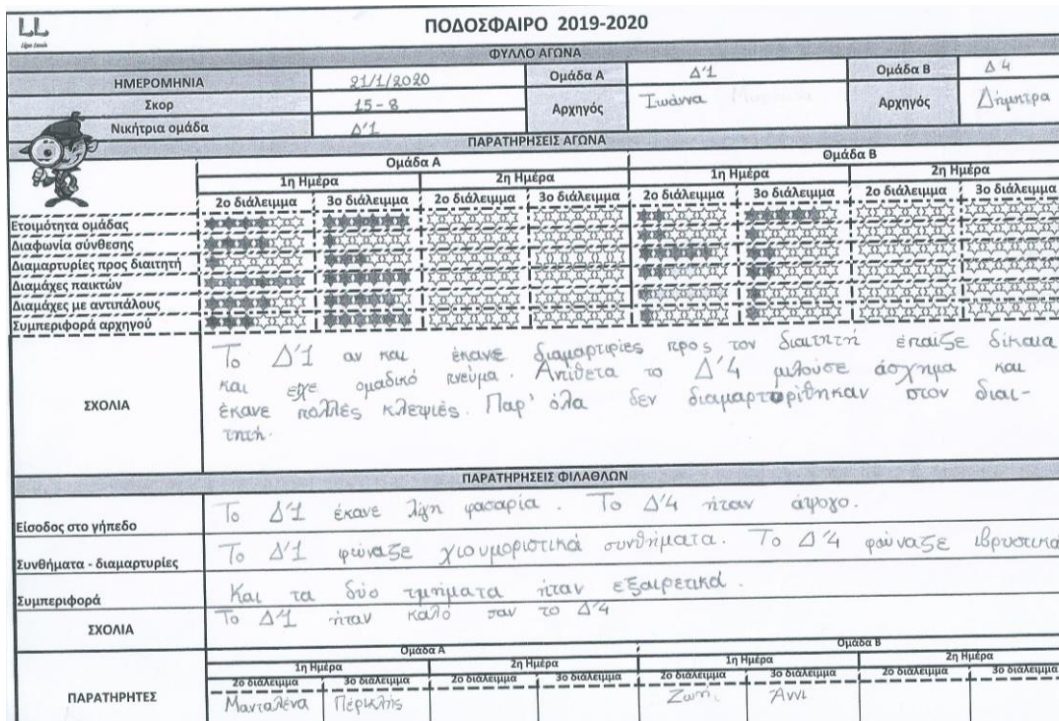 LL
ΠΟΔΟΣΦΑΙΡΟ 2019-2020
ΦΥΛΛΟ ΑΓΩΝΑ
ΗΜΕΡΟΜΗΝΙΑ 21/1/2020 Ομάδα Α Δ'1 Ομάδα Β Δ 4
Σκορ 15 - 8 Αρχηγός Ιωάννα Αρχηγός Δήμητρα
Νικήτρια ομάδα Δ'1
ΠΑΡΑΤΗΡΗΣΕΙΣ ΑΓΩΝΑ
Ομάδα Α Ομάδα Β
1η Ημέρα 2η Ημέρα 1η Ημέρα 2η Ημέρα
2ο διάλειμμα 3ο διάλειμμα 2ο διάλειμμα 3ο διάλειμμα 2ο διάλειμμα 3ο διάλειμμα 2ο διάλειμμα 3ο διάλειμμα
Ετοιμότητα ομάδας
Διαφωνία σύνθεσης
Διαμαρτυρίες προς διαιτητή
Διαμάχες παικτών
Διαμάχες με αντιπάλους
Συμπεριφορά αρχηγού
ΣΧΟΛΙΑ
Το Δ'1 αν και έκανε διαμαρτιρίες προς τον διαιτητή έπαιξε δίκαια
και είχε ομαδικό πνεύμα. Αντίθετα το Δ'4 μιλούσε άσχημα και
έκανε πολλές κλεψιές. Παρ' όλα δεν διαμαρτυρίθηκαν στον διαι-
τητή.
ΠΑΡΑΤΗΡΗΣΕΙΣ ΦΙΛΑΘΛΩΝ
Είσοδος στο γήπεδο Το Δ'1 έκανε λίγη φασαρία. Το Δ'4 ήταν άψογο.
Συνθήματα - διαμαρτυρίες Το Δ'1 φώναξε χιουμοριστικά συνθήματα. Το Δ'4 φώναξε ιβρυστικά
Συμπεριφορά Και τα δύο τμήματα ήταν εξαιρετικά.
ΣΧΟΛΙΑ Το Δ'1 ήταν καλό σαν το Δ'4
Ομάδα Α Ομάδα Β
1η Ημέρα 2η Ημέρα 1η Ημέρα 2η Ημέρα
2ο διάλειμμα 3ο διάλειμμα 2ο διάλειμμα 3ο διάλειμμα 2ο διάλειμμα 3ο διάλειμμα 2ο διάλειμμα 3ο διάλειμμα
ΠΑΡΑΤΗΡΗΤΕΣ Μανταλένα Περικλής Ζωή Άννι